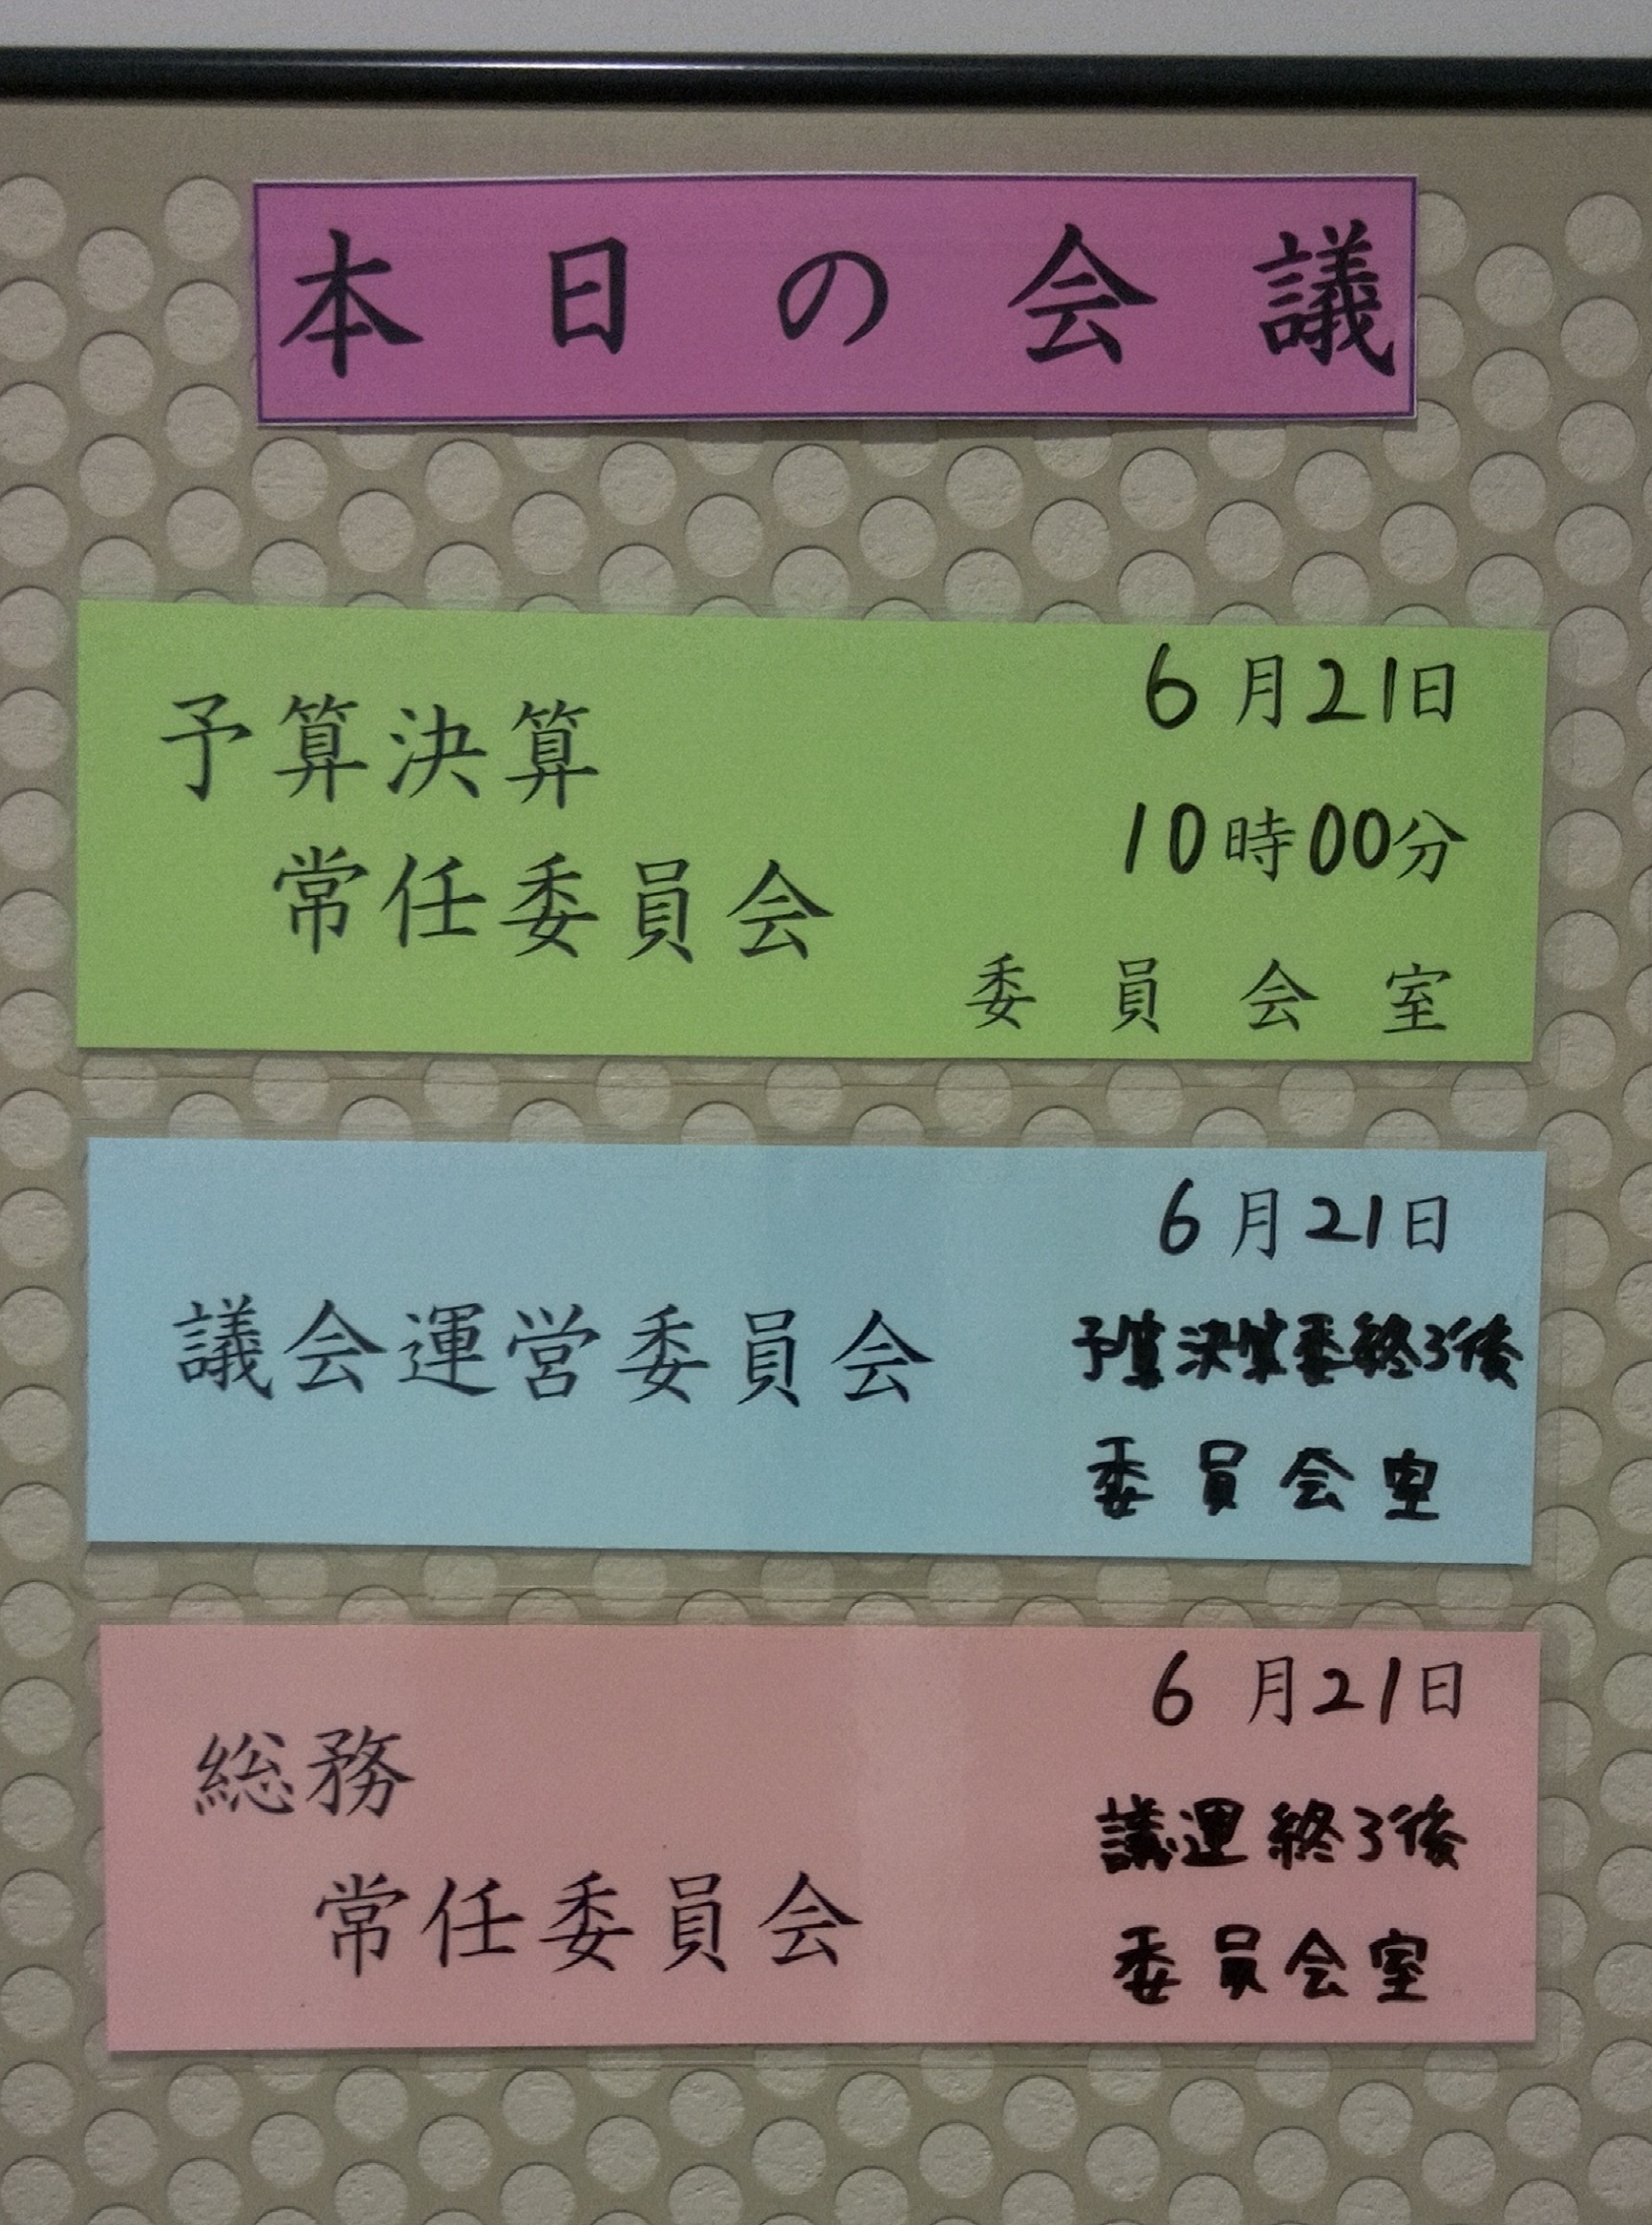 本日の会議
予算決算
常任委員会
6月21日
10時00分
委員会室
議会運営委員会
6月21日
予算決算委終了後
委員会室
総務
常任委員会
6月21日
議運終了後
委員会室